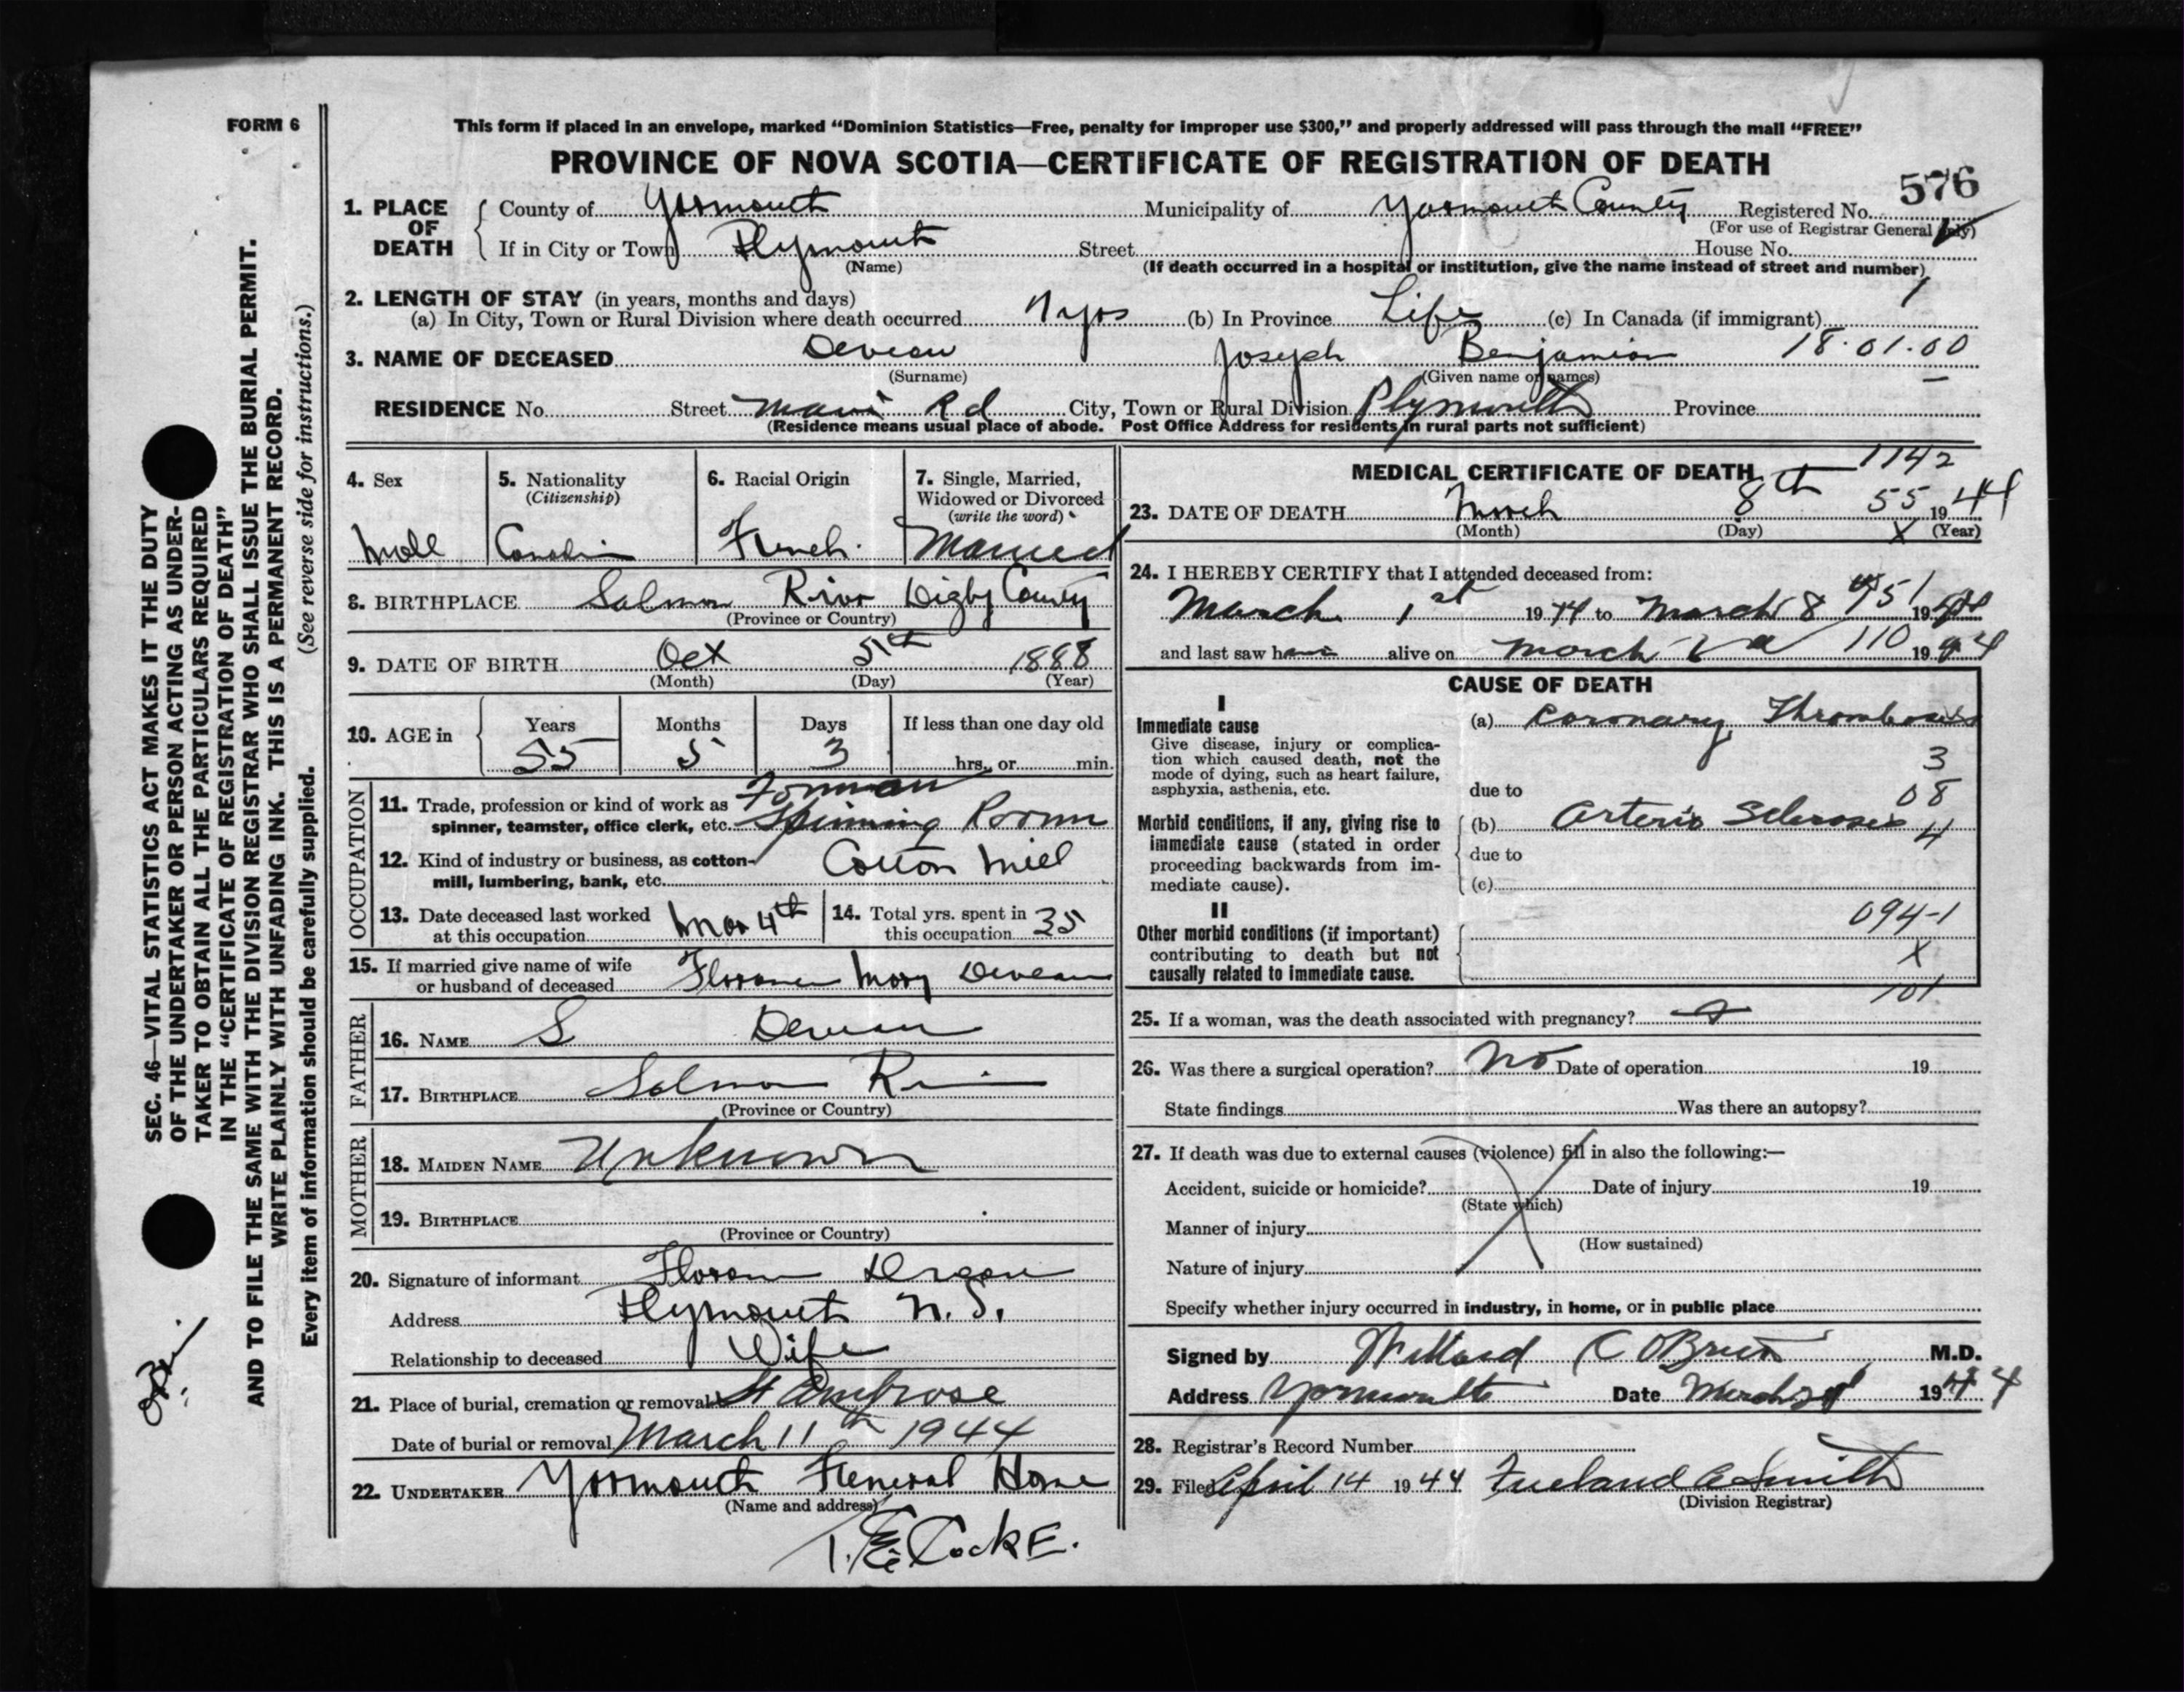 FORM 6
This form if placed in an envelope, marked “Dominion Statistics—Free, penalty for improper use $300,” and properly addressed will pass through the mail “FREE”
PROVINCE OF NOVA SCOTIA—CERTIFICATE OF REGISTRATION OF DEATH
576
1. PLACE OF DEATH County of Yarmouth Municipality of Yarmouth County Registered No.
(For use of Registrar General only)
If in City or Town Plymouth Street House No.
(Name) (If death occurred in a hospital or institution, give the name instead of street and number)
2. LENGTH OF STAY (in years, months and days)
(a) In City, Town or Rural Division where death occurred yrs (b) In Province Life (c) In Canada (if immigrant)
3. NAME OF DECEASED Deveau Joseph Benjamin 18.01.00
(Surname) (Given name or names)
RESIDENCE No. Street Main Rd City, Town or Rural Division Plymouth Province
(Residence means usual place of abode. Post Office Address for residents in rural parts not sufficient)
4. Sex 5. Nationality (Citizenship) 6. Racial Origin 7. Single, Married, Widowed or Divorced (write the word)
Male Canadian French. Married
8. BIRTHPLACE Salmon River Digby County
(Province or Country)
9. DATE OF BIRTH Oct 5th 1888
(Month) (Day) (Year)
10. AGE in Years Months Days If less than one day old
55 5 3 hrs. or min.
OCCUPATION
11. Trade, profession or kind of work as spinner, teamster, office clerk, etc. Forman Spinning Room
12. Kind of industry or business, as cotton-mill, lumbering, bank, etc. Cotton Mill
13. Date deceased last worked at this occupation Mar 4th 14. Total yrs. spent in this occupation 35
15. If married give name of wife or husband of deceased Mary Deveau
FATHER
16. NAME S Deveau
17. BIRTHPLACE Salmon River
(Province or Country)
MOTHER
18. MAIDEN NAME Unknown
19. BIRTHPLACE
(Province or Country)
20. Signature of informant
Address Plymouth N.S.
Relationship to deceased Wife
21. Place of burial, cremation or removal St Ambrose
Date of burial or removal March 11th 1944
22. UNDERTAKER Yarmouth Funeral Home
(Name and address)
MEDICAL CERTIFICATE OF DEATH 1142
23. DATE OF DEATH March 8th 55 1944
(Month) (Day) X (Year)
24. I HEREBY CERTIFY that I attended deceased from:
March 1st 1944 to March 8 1944
and last saw h alive on March 110 1944
CAUSE OF DEATH
I
Immediate cause (a) Coronary Thrombosis
Give disease, injury or complication which caused death, not the mode of dying, such as heart failure, asphyxia, asthenia, etc.
3
due to 08
Morbid conditions, if any, giving rise to immediate cause (stated in order proceeding backwards from immediate cause).
(b) Arterio Sclerosis 4
due to
(c)
II
094-1
Other morbid conditions (if important) contributing to death but not causally related to immediate cause.
X
101
25. If a woman, was the death associated with pregnancy?
26. Was there a surgical operation? No Date of operation 19
State findings Was there an autopsy?
27. If death was due to external causes (violence) fill in also the following:—
Accident, suicide or homicide? Date of injury 19
(State which)
Manner of injury
(How sustained)
Nature of injury
Specify whether injury occurred in industry, in home, or in public place
Signed by Willard C OBrien M.D.
Address Yarmouth Date March 1944
28. Registrar's Record Number
29. Filed April 14 1944 Freeland Smith
(Division Registrar)
SEC. 46—VITAL STATISTICS ACT MAKES IT THE DUTY
OF THE UNDERTAKER OR PERSON ACTING AS UNDER-
TAKER TO OBTAIN ALL THE PARTICULARS REQUIRED
IN THE “CERTIFICATE OF REGISTRATION OF DEATH”
AND TO FILE THE SAME WITH THE DIVISION REGISTRAR WHO SHALL ISSUE THE BURIAL PERMIT.
WRITE PLAINLY WITH UNFADING INK. THIS IS A PERMANENT RECORD.
Every item of information should be carefully supplied. (See reverse side for instructions.)